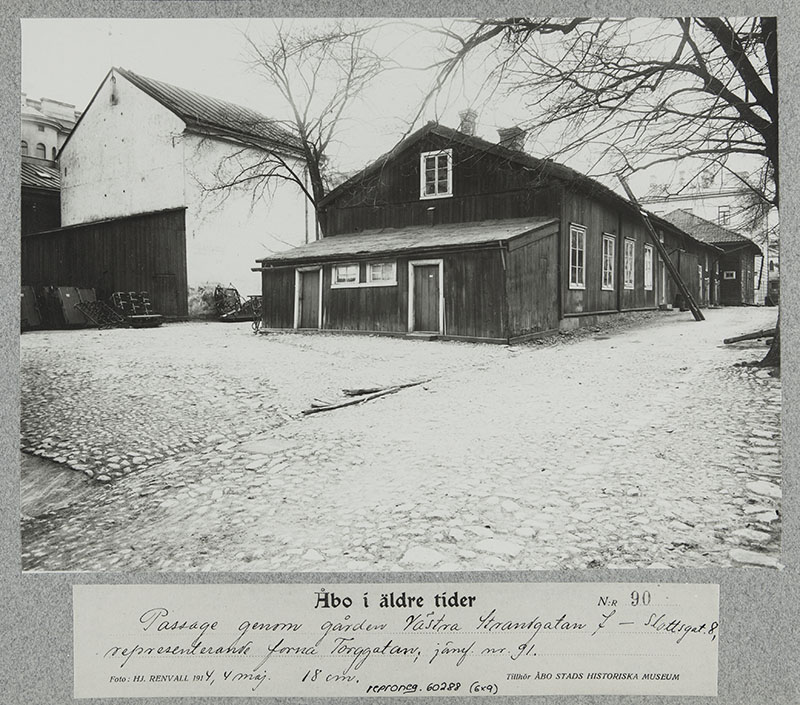 Åbo i äldre tider N:R 90
Passage genom gården Västra Strandgatan 7 — Slottsgat. 8,
representerande forna Torggatan, jämf. nr. 91.
Foto: HJ. RENVALL 1914, 4 maj. 18 cm. Tillhör ÅBO STADS HISTORISKA MUSEUM
reproneg. 60288 (6x9)